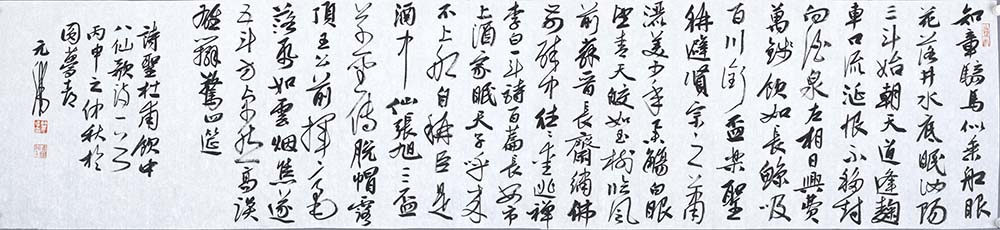 知章騎馬似乘船眼
花落井水底眠汝陽
三斗始朝天道逢麴
車口流涎恨不移封
向酒泉左相日興費
萬錢飲如長鯨吸
百川銜盃樂聖
稱避賢宗之蕭
灑美少年舉觴白眼
望青天皎如玉樹臨風
前蘇晉長齋繡佛
前醉中往往愛逃禪
李白一斗詩百篇長安市
上酒家眠天子呼來
不上船自稱臣是
酒中仙張旭三盃
草聖傳脫帽露
頂王公前揮毫
落紙如雲烟焦遂
五斗方卓然高談
雄辯驚四筵
詩聖杜甫飲中
八仙歌詩一首
丙申之仲秋於
國夢
元